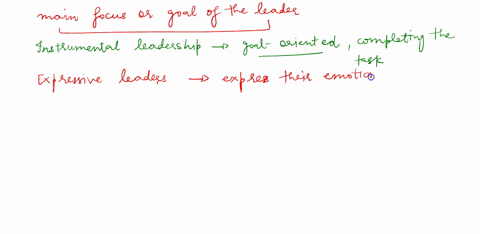 main focus or goal of the leader
Instrumental leadership → goal-oriented, completing the
task
Expressive leaders → expres their emotio